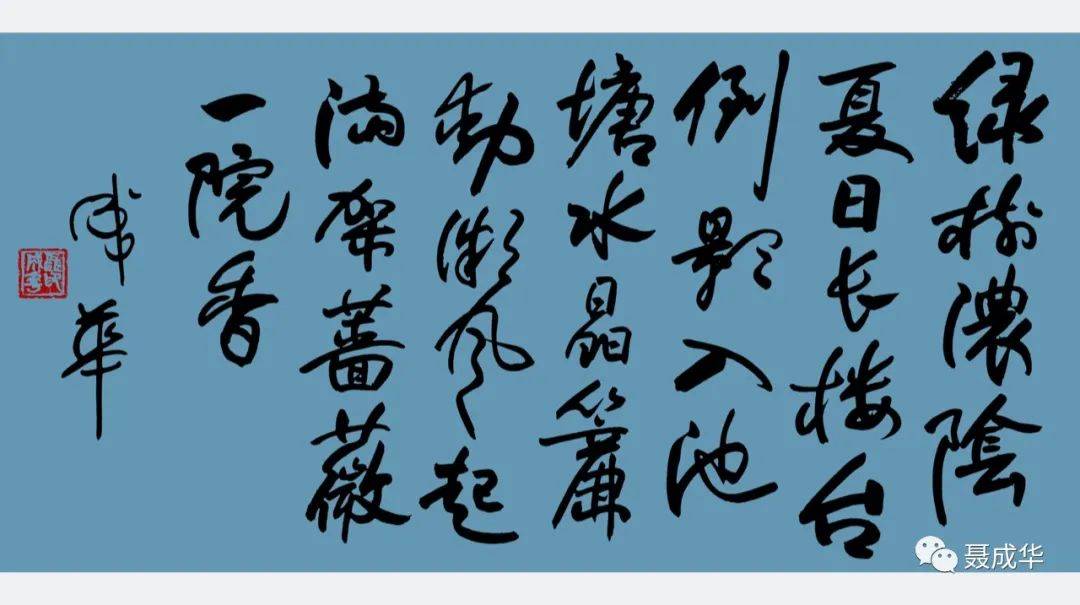 绿树濃陰
夏日长楼台
倒影入池
塘水晶簾
動微风起
满架蔷薇
一院香
成華
聂成华